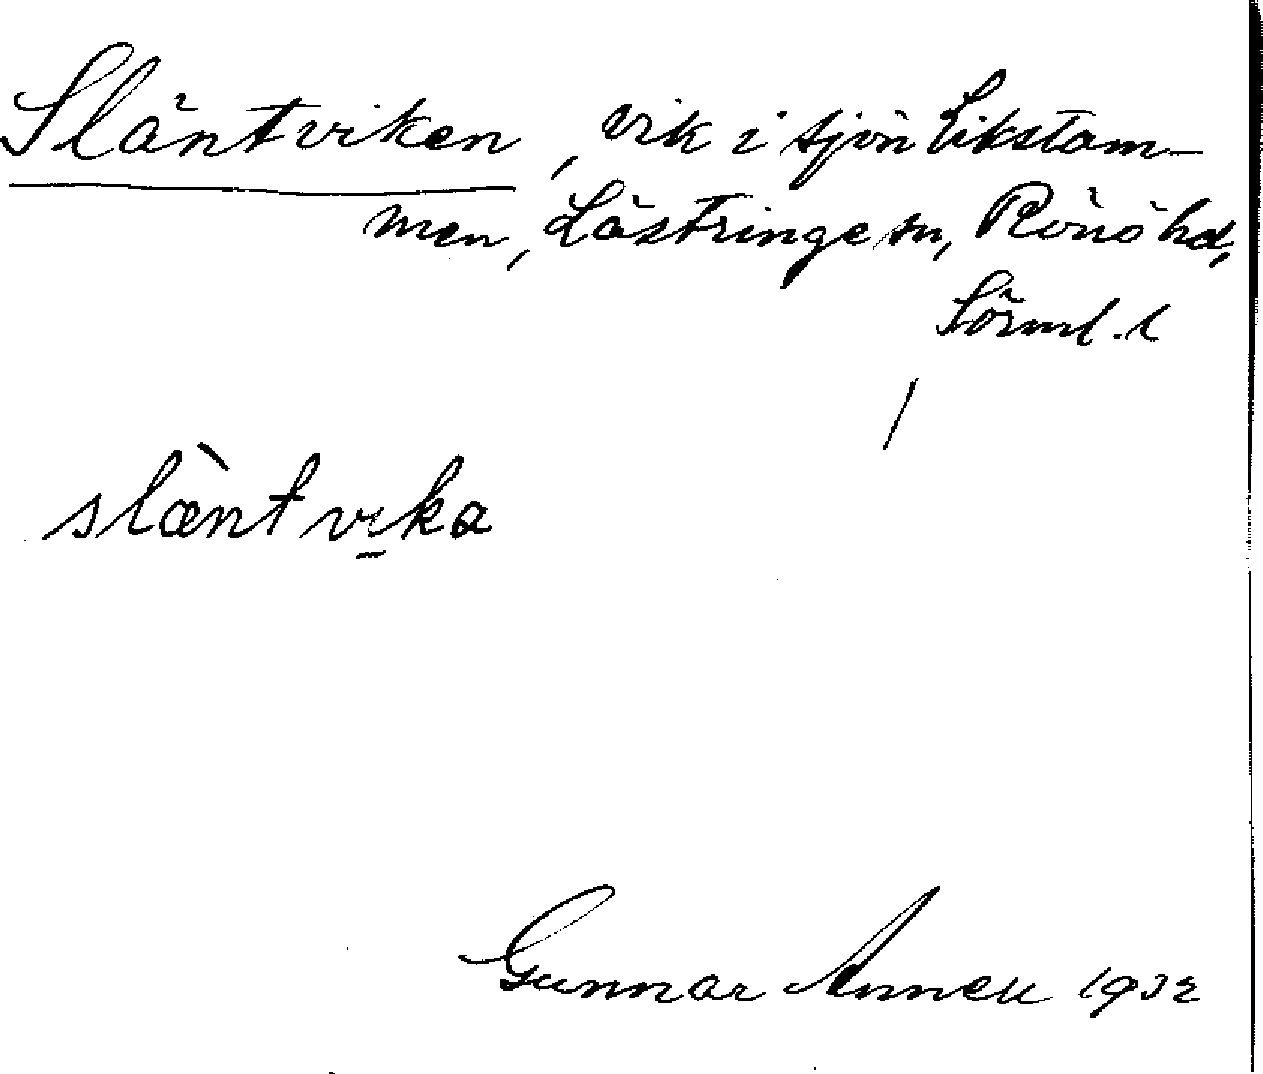 Släntviken, vik i sjön Likstam-
men, Lästringe sn, Rönö hd,
Sörml. l
slæ̀ntvika
Gunnar Annell 1932